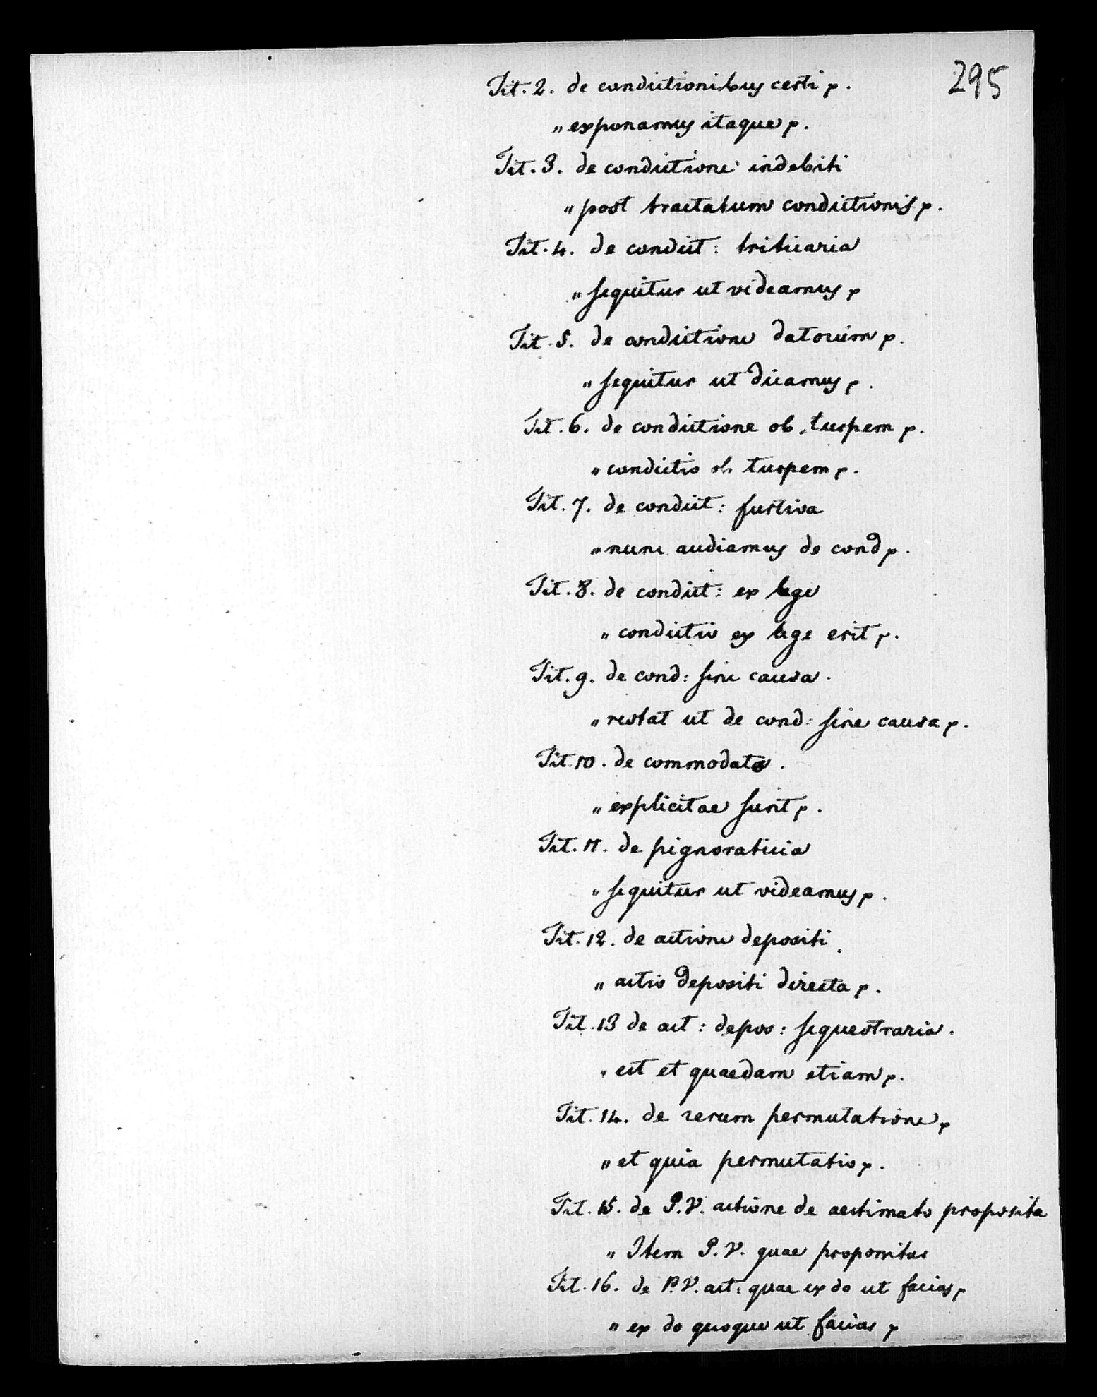 295
Tit. 2. de condictionibus certi p.
„ exponamus itaque p.
Tit. 3. de condictione indebiti
„ post tractatum condictionis p.
Tit. 4. de condict: triticaria
„ sequitur ut videamus p
Tit. 5. de condictione datorum p.
„ sequitur ut dicamus p.
Tit. 6. de condictione ob turpem p.
„ condictio ob turpem p.
Tit. 7. de condict: furtiva
„ nunc audiamus de cond p.
Tit. 8. de condict: ex lege
„ condictio ex lege erit p.
Tit. 9. de cond: sine causa.
„ restat ut de cond: sine causa p.
Tit. 10. de commodato.
„ explicitae sunt p.
Tit. 11. de pignoraticia
„ sequitur ut videamus p.
Tit. 12. de actione depositi.
„ actio depositi directa p.
Tit. 13 de act: depos: sequestraria.
„ est et quaedam etiam p.
Tit. 14. de rerum permutatione p
„ et quia permutatio p.
Tit. 15. de P.V. actione de aestimato proposita
„ Item P.V. quae proponitur
Tit. 16. de P.V. act: quae ex do ut facias p
„ ex do quoque ut facias p